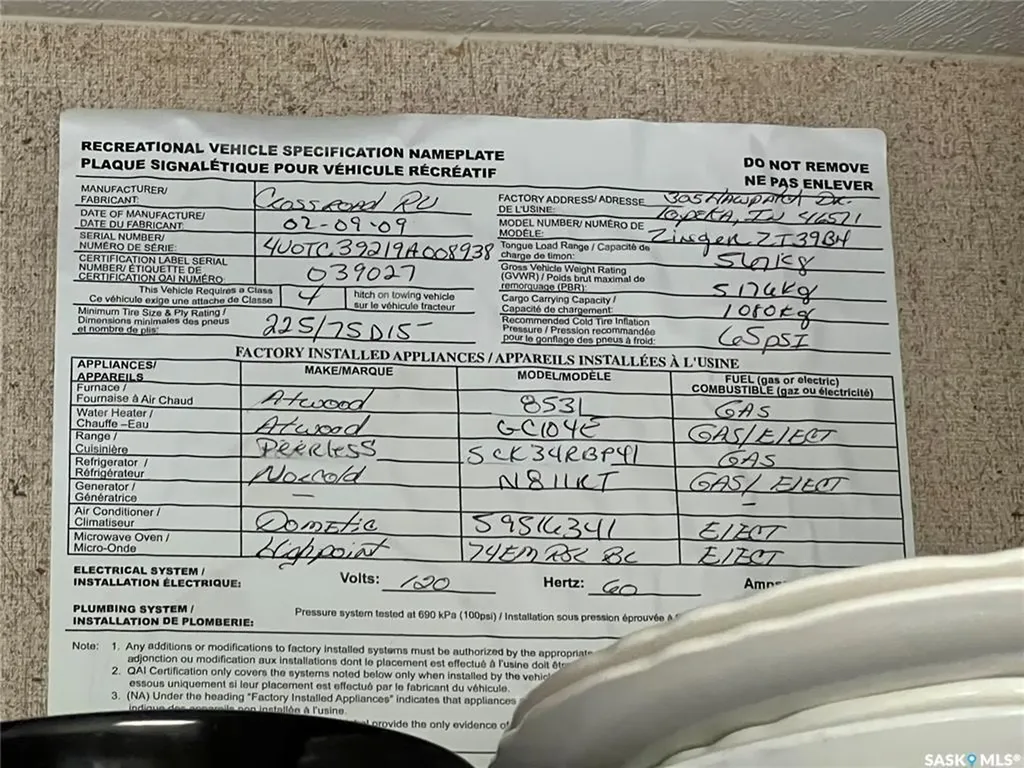 RECREATIONAL VEHICLE SPECIFICATION NAMEPLATE
PLAQUE SIGNALÉTIQUE POUR VÉHICULE RÉCRÉATIF
DO NOT REMOVE
NE PAS ENLEVER
MANUFACTURER/
FABRICANT: Crossroad RV
DATE OF MANUFACTURE/
DATE DU FABRICANT: 02-09-09
SERIAL NUMBER/
NUMÉRO DE SÉRIE: 4U0TC39219A008938
CERTIFICATION LABEL SERIAL
NUMBER/ ÉTIQUETTE DE
CERTIFICATION QAI NUMÉRO: 039027
This Vehicle Requires a Class
Ce véhicule exige une attache de Classe 4 hitch on towing vehicle
sur le véhicule tracteur
Minimum Tire Size & Ply Rating /
Dimensions minimales des pneus
et nombre de plis: 225/75D15
FACTORY ADDRESS/ ADRESSE
DE L'USINE: 305 HAWPATCH DR.
TOPEKA, IN 46571
MODEL NUMBER/ NUMÉRO DE
MODÈLE: Zinger ZT39BH
Tongue Load Range / Capacité de
charge de timon: 567kg
Gross Vehicle Weight Rating
(GVWR) / Poids brut maximal de
remorquage (PBR): 5176kg
Cargo Carrying Capacity /
Capacité de chargement: 1080kg
Recommended Cold Tire Inflation
Pressure / Pression recommandée
pour le gonflage des pneus à froid: 65psi
FACTORY INSTALLED APPLIANCES / APPAREILS INSTALLÉES À L'USINE
APPLIANCES/
APPAREILS MAKE/MARQUE MODEL/MODÈLE FUEL (gas or electric)
COMBUSTIBLE (gaz ou électricité)
Furnace /
Fournaise à Air Chaud Atwood 8531 GAS
Water Heater /
Chauffe –Eau Atwood GC104E GAS/ElECT
Range /
Cuisinière PEERLESS SCK34RBP41 GAS
Refrigerator /
Réfrigérateur Norcold N811RT GAS/ElECT
Generator /
Génératrice — –
Air Conditioner /
Climatiseur Dometic 59516341 ElECT
Microwave Oven /
Micro-Onde Highpoint ElECT
ELECTRICAL SYSTEM /
INSTALLATION ÉLECTRIQUE: Volts: 120 Hertz: 60
PLUMBING SYSTEM /
INSTALLATION DE PLOMBERIE: Pressure system tested at 690 kPa (100psi) / Installation sous pression éprouvée à
Note: 1. Any additions or modifications to factory installed systems must be authorized by the appropriate
adjonction ou modification aux installations dont le placement est effectué à l'usine doit
2. QAI Certification only covers the systems noted below only when installed by the
essous uniquement si leur placement est effectué par le fabricant du véhicule.
3. (NA) Under the heading "Factory Installed Appliances" indicates that appliances
indique des appareils non installée à l'usine.
provide the only evidence of
SASK MLS®